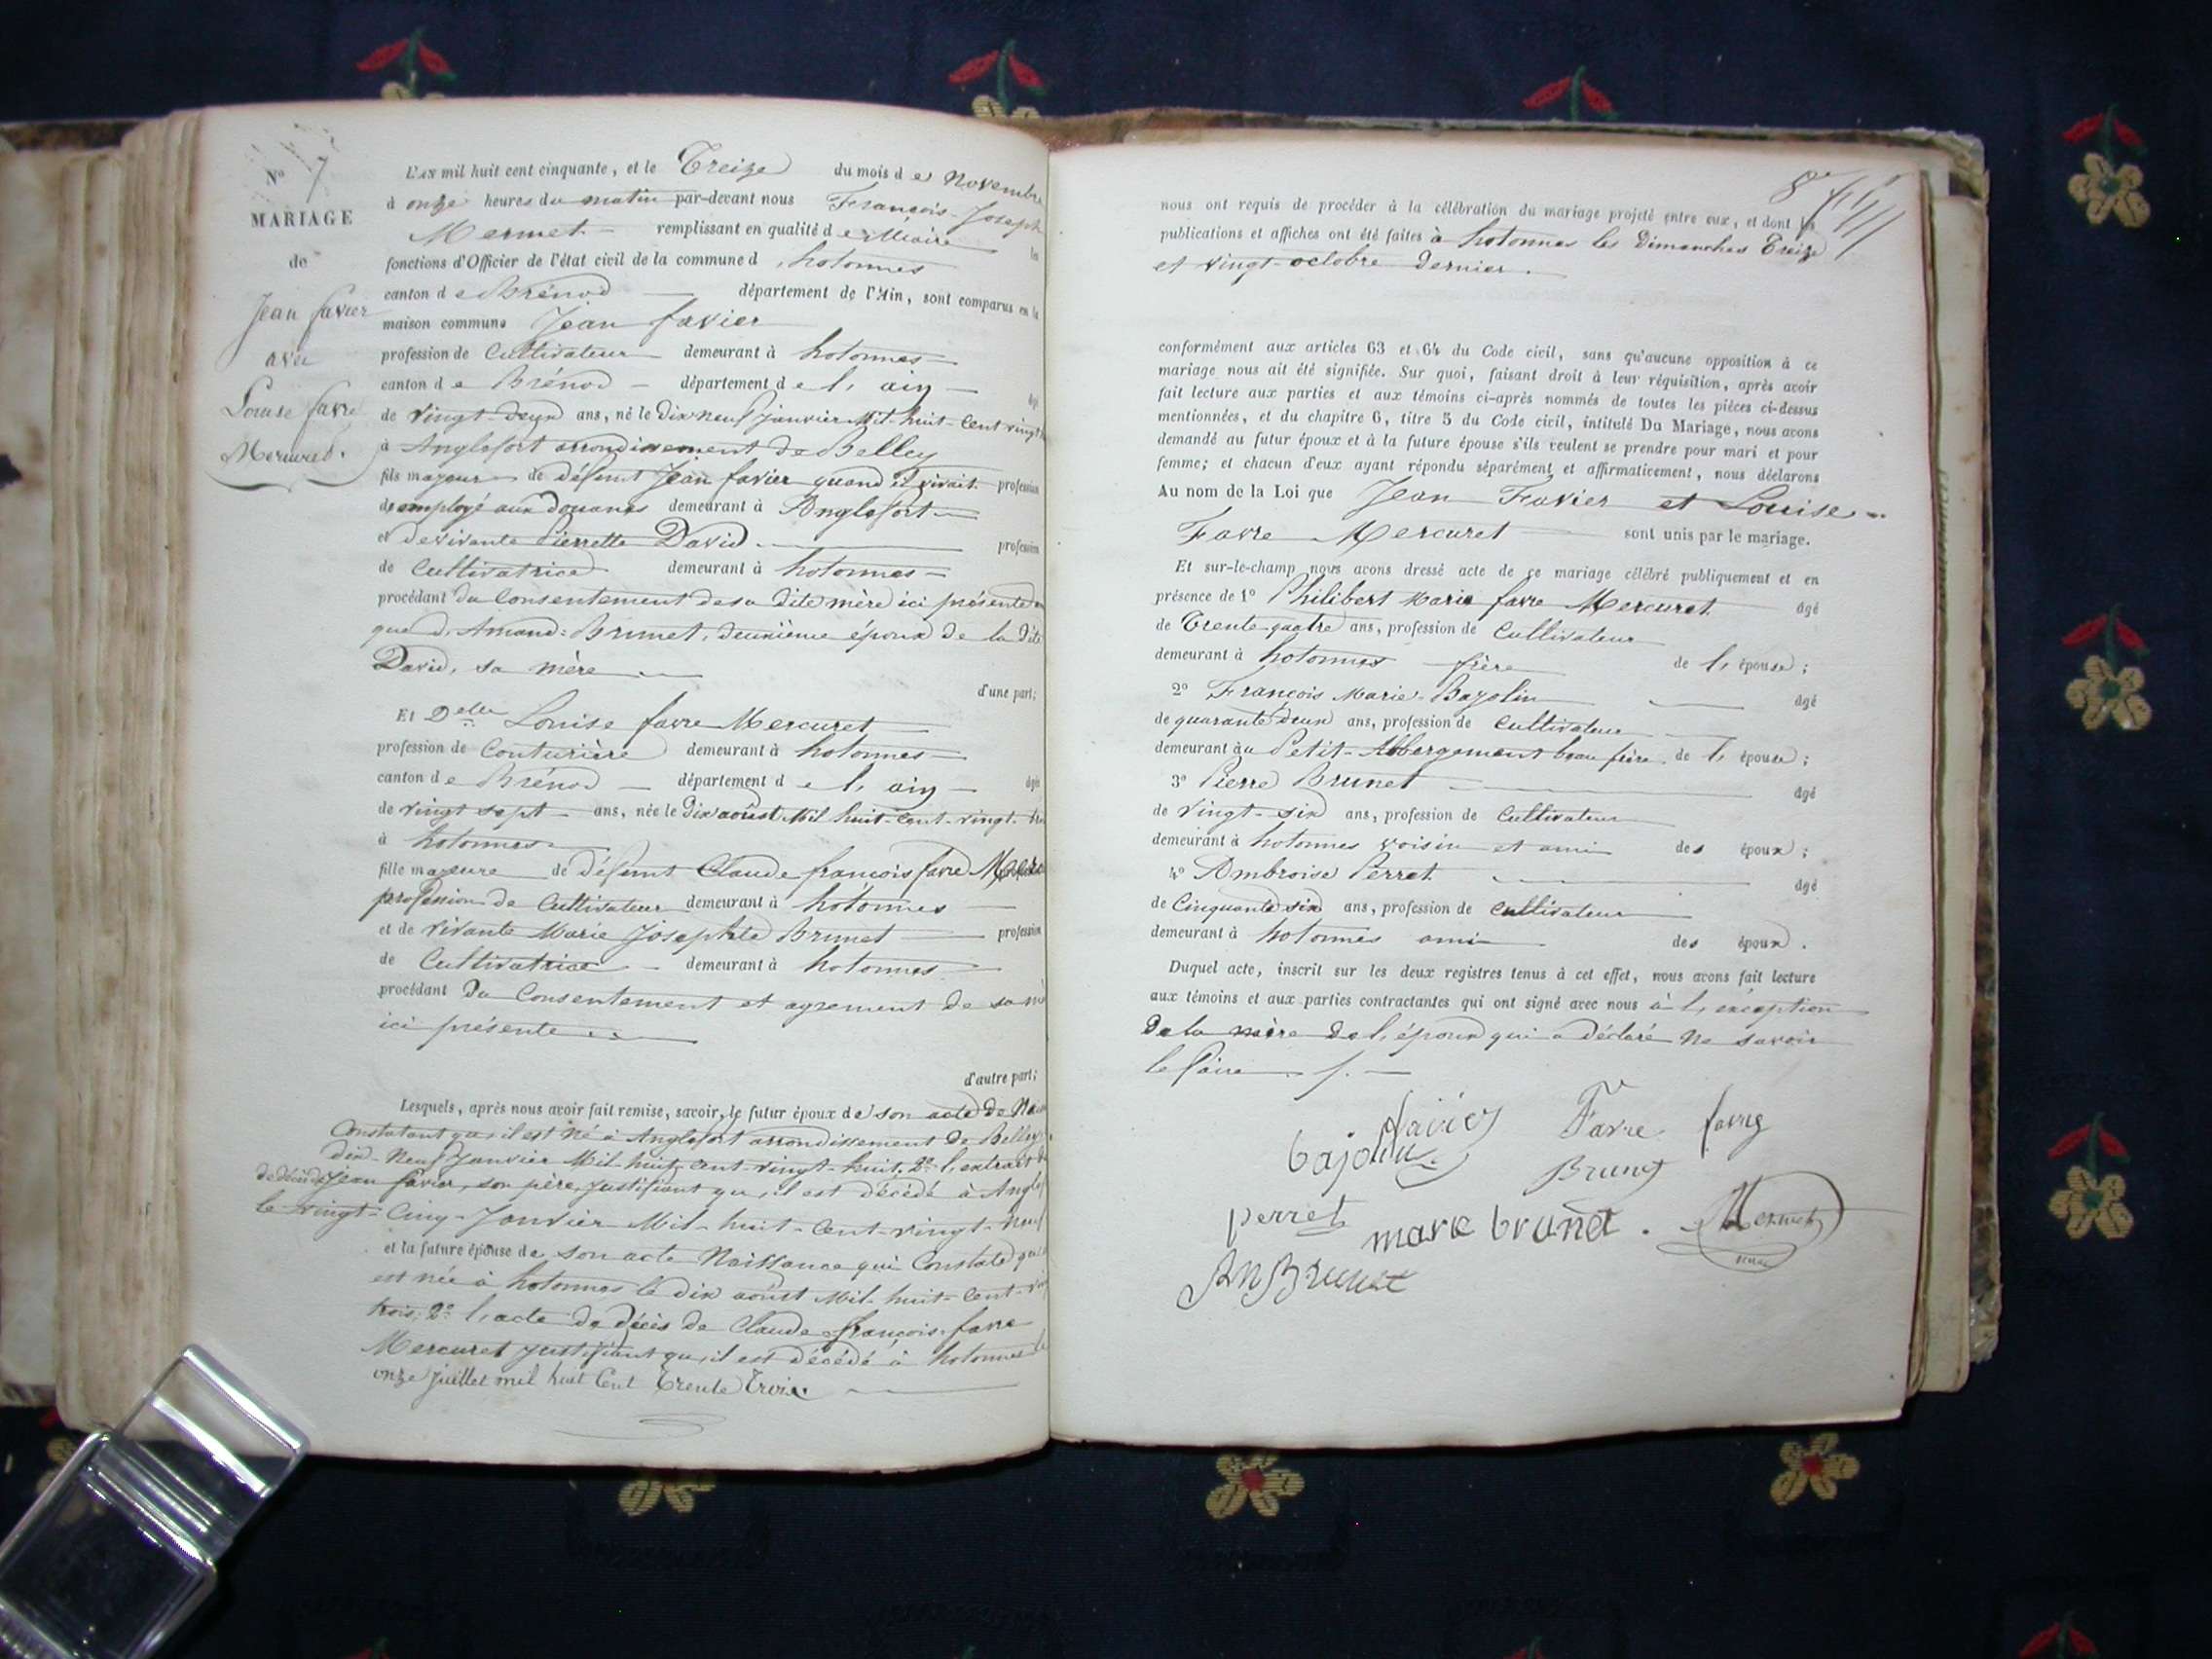 Nº 7
MARIAGE
de
Jean favier
avec
Louise favre
Mercuret.
L'AN mil huit cent cinquante, et le Treize du mois de Novembre
à onze heures du matin par-devant nous François-Joseph
Mermet remplissant en qualité de Maire les
fonctions d'Officier de l'état civil de la commune d'hotonnes
canton de Brénod département de l'Ain, sont comparus en la
maison commune Jean favier
profession de Cultivateur demeurant à hotonnes
canton de Brénod département de l'ain âgé
de vingt deux ans, né le Dix neuf Janvier Mil-huit-Cent vingt
à Anglefort arrondissement de Belley
fils majeur de défunt Jean favier quand il vivait profession
de employé aux Douanes demeurant à Anglefort
et de vivante Pierrette David profession
de Cultivatrice demeurant à hotonnes
procédant du Consentement de sa dite mère ici présente
que d'Amand Brunet, deuxième époux de la dite
David, sa mère
d'une part;
Et Delle Louise favre Mercuret
profession de Couturière demeurant à hotonnes
canton de Brénod département de l'ain âgée
de vingt sept ans, née le Dix aoust Mil huit-Cent-vingt-
à hotonnes
fille majeure de défunt Claude françois favre
profession de Cultivateur demeurant à hotonnes
et de vivante Marie Josephte Brunet profession
de Cultivatrice demeurant à hotonnes
procédant Du Consentement et agrement de sa
ici présente
d'autre part;
Lesquels, après nous avoir fait remise, savoir, le futur époux de son acte de
Constatant qu'il est né à Anglefort arrondissement de Belley
dix-Neuf Janvier Mil-huit-cent-vingt-huit. 2º l'extrait
de décès de Jean favier, son père, Justifiant qu'il est décédé à
le vingt-Cinq-Janvier Mil-huit-Cent-vingt-neuf
et la future épouse de son acte Naissance qui Constate
est née à hotonnes le dix aoust Mil-huit-Cent-
trois; 2º l'acte de décès de Claude françois favre
Mercuret Justifiant qu'il est décédé à hotonnes le
onze Juillet mil huit Cent Trente Trois
8
nous ont requis de procéder à la célébration du mariage projeté entre eux, et dont les
publications et affiches ont été faites à hotonnes les Dimanches Treize
et vingt-octobre Dernier.
conformément aux articles 63 et 64 du Code civil, sans qu'aucune opposition à ce
mariage nous ait été signifiée. Sur quoi, faisant droit à leur réquisition, après avoir
fait lecture aux parties et aux témoins ci-après nommés de toutes les pièces ci-dessus
mentionnées, et du chapitre 6, titre 5 du Code civil, intitulé Du Mariage, nous avons
demandé au futur époux et à la future épouse s'ils veulent se prendre pour mari et pour
femme; et chacun d'eux ayant répondu séparément et affirmativement, nous déclarons
Au nom de la Loi que Jean Favier et Louise
Favre Mercuret sont unis par le mariage.
Et sur-le-champ nous avons dressé acte de ce mariage célébré publiquement et en
présence de 1º Philibert Marie favre Mercuret âgé
de Trente quatre ans, profession de Cultivateur
demeurant à hotonnes frère de l'épouse;
2º François Marie Bajolin âgé
de quarante deux ans, profession de Cultivateur
demeurant au Petit-Abbergement beau frère de l'épouse;
3º Pierre Brunet âgé
de vingt-six ans, profession de Cultivateur
demeurant à hotonnes voisin et ami des époux;
4º Ambroise Perret âgé
de Cinquante six ans, profession de Cultivateur
demeurant à hotonnes ami des époux.
Duquel acte, inscrit sur les deux registres tenus à cet effet, nous avons fait lecture
aux témoins et aux parties contractantes qui ont signé avec nous à l'exception
De la mère de l'époux qui a déclaré Ne savoir
le faire.
favier Favre favre
bajolin Brunet
perret marie brunet. Mermet
maire
An Brunet